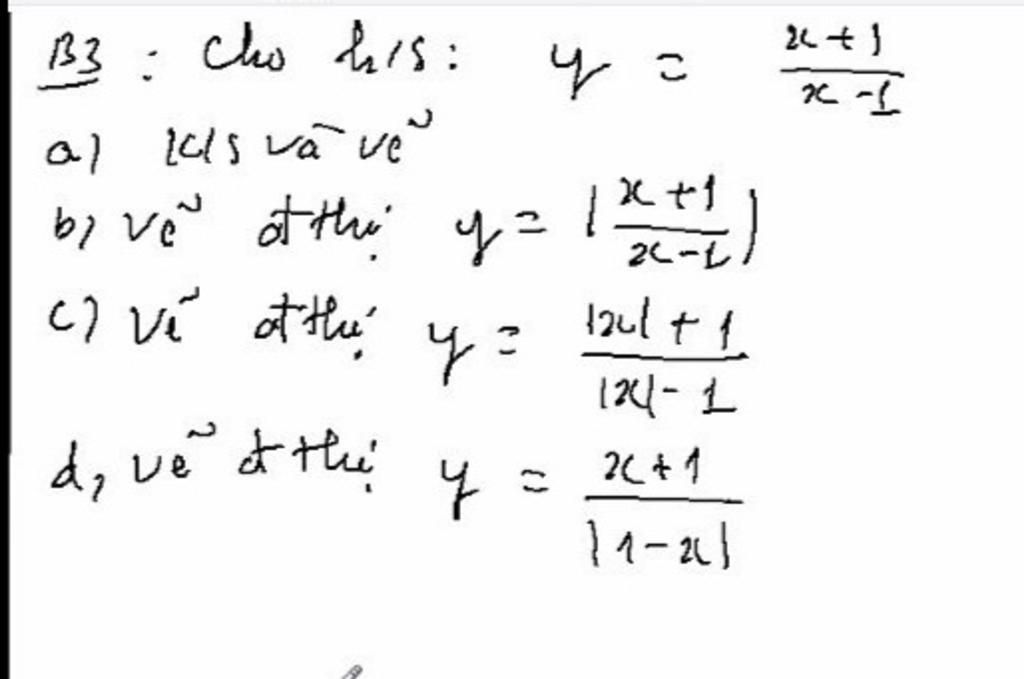 B3 : Cho h/s: y = \frac{x+1}{x-1}
a) K/S và vẽ
b) vẽ đt thị y = |\frac{x+1}{x-1}|
c) vẽ đt thị y = \frac{|x|+1}{|x|-1}
d, vẽ đt thị y = \frac{x+1}{|1-x|}